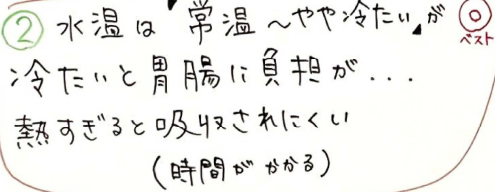 ② 水温は「常温～やや冷たい」が ◎
ベスト
冷たいと胃腸に負担が...
熱すぎると吸収されにくい
(時間がかかる)